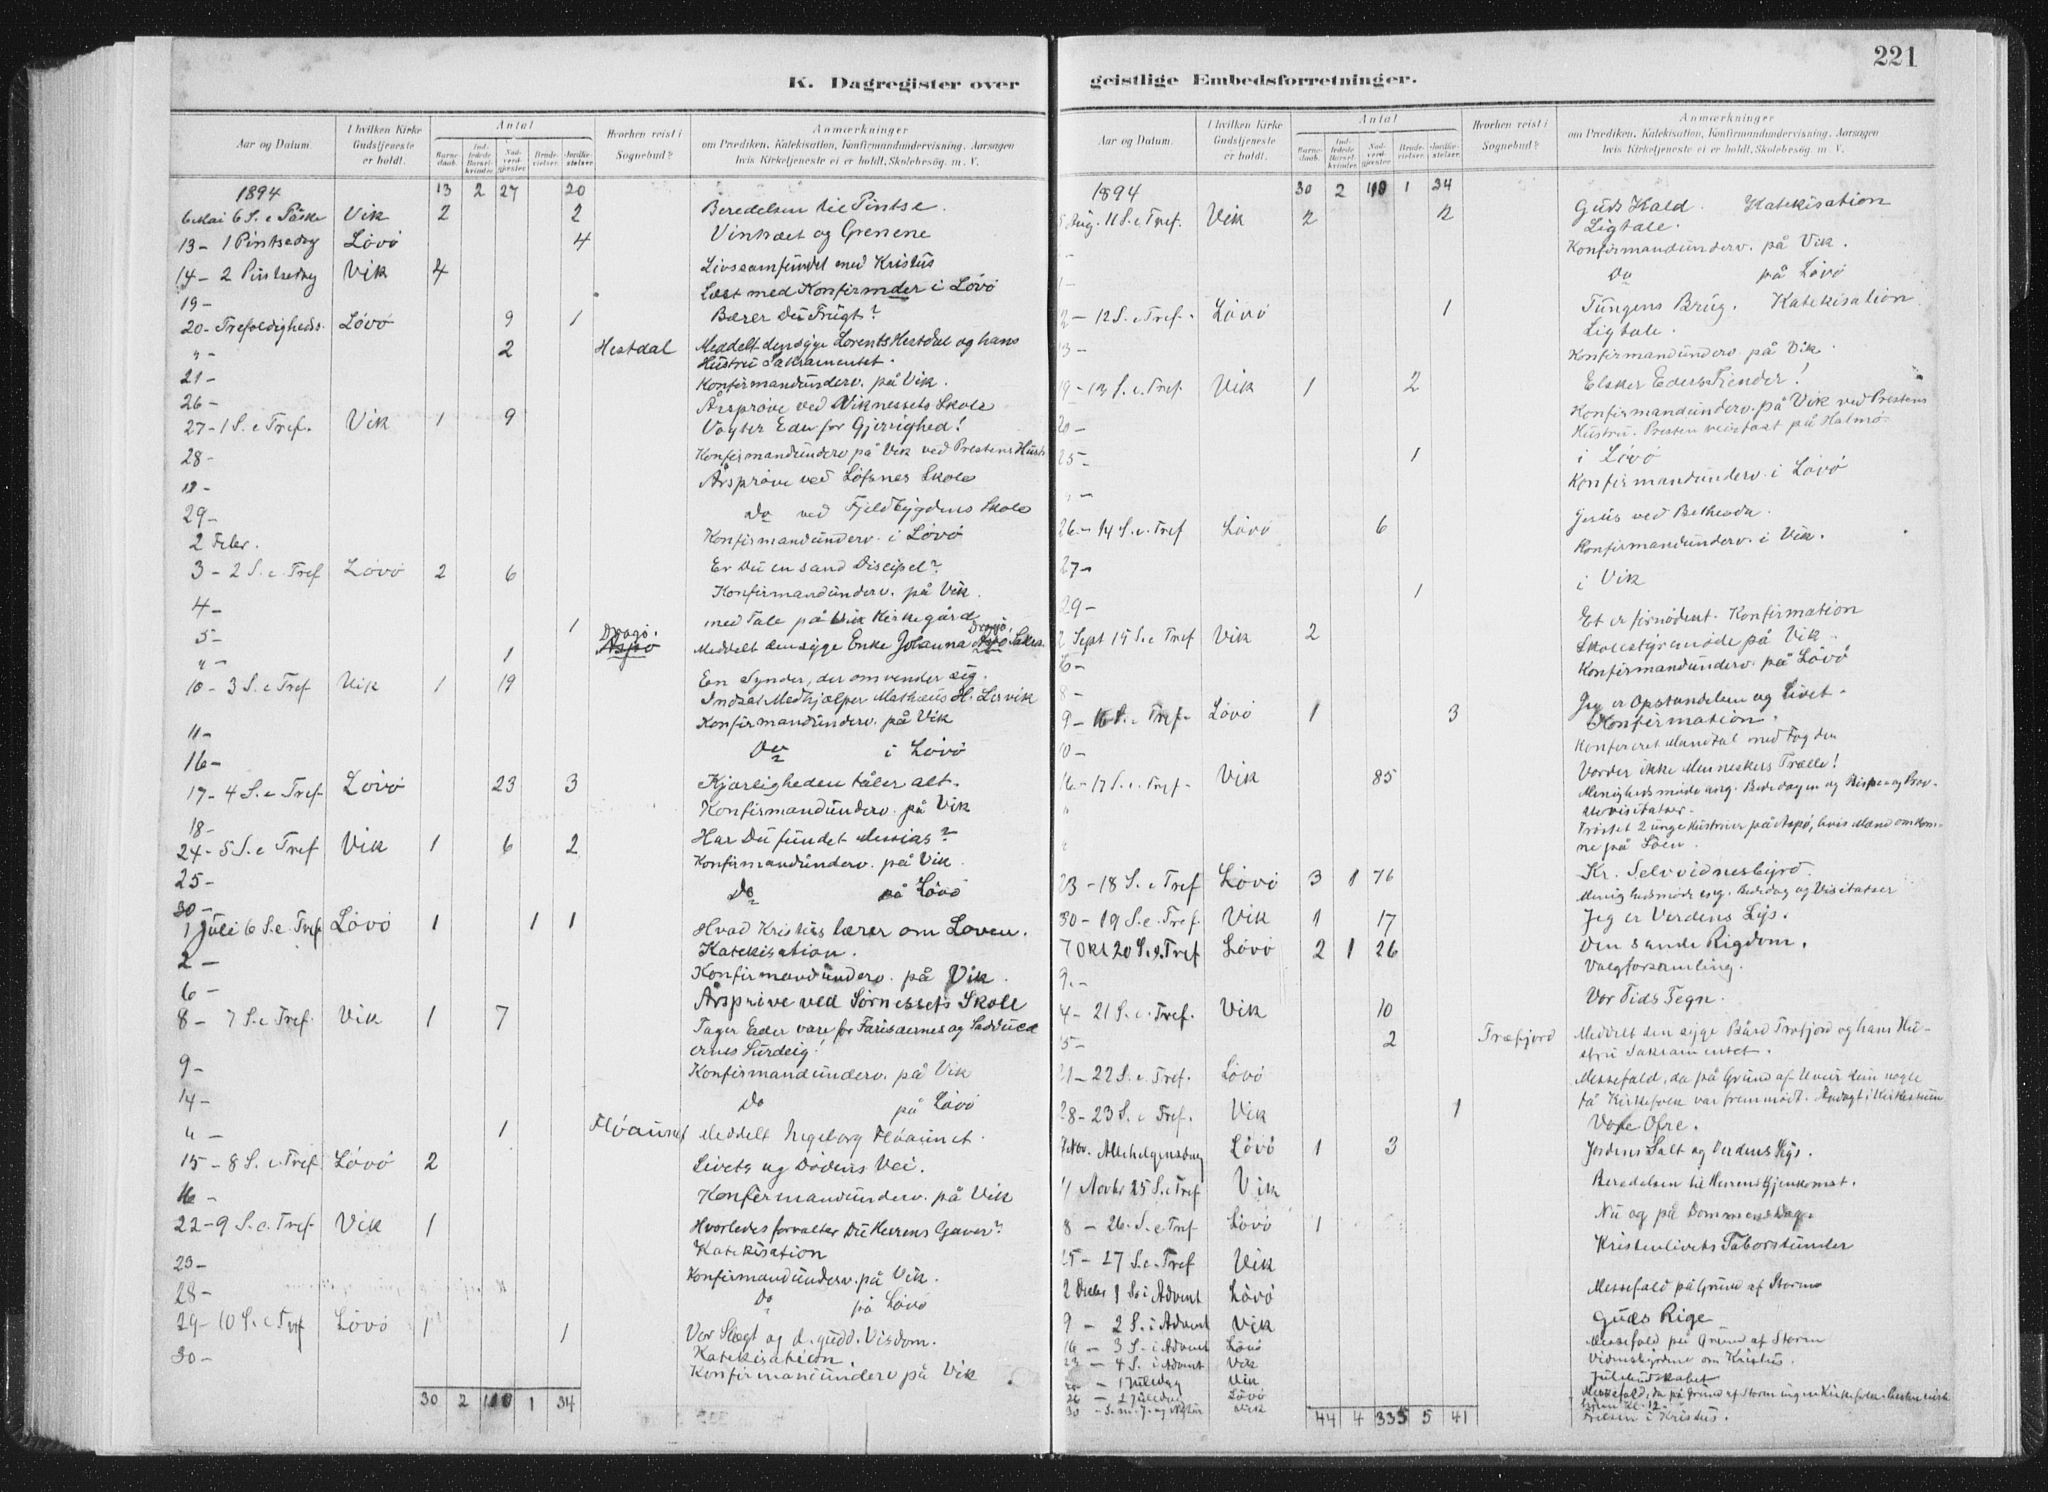 221
K. Dagregister over
geistlige Embedsforretninger.
Aar og Datum. I hvilken Kirke Gudstjeneste er holdt. Antal Hvorhen reist i Sognebud? Anmærkninger
Barne-daab. Ind-ledede Barsel-kvinder. Nad-verd-gjester. Brude-vielser. Jordfæ-stelser.
om Prædiken, Katekisation, Konfirmandundervisning, Aarsagen
hvis Kirketjeneste ei er holdt, Skolebesög, m. V.
1894 13 2 27 20
6 Mai 6 S. e Påske Vik 2 2 Beredelsen til Pintse.
13 - 1 Pintsedag Lövö 4 Vintræet og Grenene
14 - 2 Pintsedag Vik 4 Livssamfundet med Kristus
19 - Læst med Konfirmder i Lövö
20 - Trefoldigheds. Lövö 9 1 Bærer Du Frugt?
" - 2 Hestdal Meddelt den syge Lorents Hestdal og hans
Hustru Sakramentet.
21 - Konfirmandunderv. på Vik.
26 - Årsprøve ved Viknessets Skole
27 - 1 S. e Tref. Vik 1 9 Vogter Eder for Gjerrighed!
28 - Konfirmandunderv på Vik ved Prestens Hustr
Årsprøve ved Löfsnes Skole
29 - Do ved Fjeldbygdens Skole
2 Konfirmandunderv. i Lövö
3 - 2 S. e. Tref Lövö 2 6 Er Du en sand Discipel?
4 - Konfirmandunderv. på Vik.
5 - 1 med Tale på Vik Kirkegård
" - 1 Meddelt den syge Enke Johanna
10 - 3 S. e Tref Vik 1 19 En Synder, der omvender sig.
Indsat Medhjælper Mathæus H. Lervik
11 - Konfirmandunderv. på Vik
16 - Do i Lövö
17 - 4 S. e Tref Lövö 23 3 Kjærligheden tåler alt.
18 - Konfirmandunderv. på Vik
24 - 5 S. e Tref Vik 1 6 2 Har Du fundet Messias?
25 - Konfirmandunderv. på Vik.
30 - Do på Lövö
1 Juli 6 S. e Tref Lövö 1 1 1 Hvad Kristus lærer om Loven.
Katekisation.
2 - Konfirmandunderv. på Vik.
6 - Årsprøve ved Sörnessets Skole
8 - 7 S. e Tref. Vik 1 7 Tager Eder vare for Farisæernes og Sadducæ
ernes Surdeig!
9 - Konfirmandunderv. på Vik
14 - Do på Lövö
" - 1 Flöaunet Meddelt Ingeborg Flöaunet.
15 - 8 S. e Tref Lövö 2 Livets og Dödens Vei.
16 - Konfirmandunderv. på Vik
22 - 9 S. e. Tref Vik 1 Hvorledes forvalter Du Herrens Gaver?
Katekisation
23 - Konfirmandunderv. på Vik.
28 - Do på Lövö
29 - 10 S. e Tref Lövö 1 1 Vor Slægt og d. gudd. Visdom.
Katekisation.
30 - Konfirmandunderv på Vik
30 2 110 1 34
Aar og Datum. I hvilken Kirke Gudstjeneste er holdt. Antal Hvorhen reist i Sognebud? Anmærkninger
Barne-daab. Ind-ledede Barsel-kvinder. Nad-verd-gjester. Brude-vielser. Jordfæ-stelser.
om Prædiken, Katekisation, Konfirmandundervisning, Aarsagen
hvis Kirketjeneste ei er holdt, Skolebesög, m. V.
1894 30 2 110 1 34
5 Aug. 11 S. e Tref. Vik 2 2 Guds Kald. Katekisation
Ligtale.
- Konfirmandunderv. på Vik.
- Do på Lövö
2 - 12 S. e Tref. Lövö 1 Tungens Brug. Katekisation
Ligtale.
13 - Konfirmandunderv. på Vik
19 - 13 S. e. Tref. Vik 1 2 Elsker Eders Fiender!
20 - Konfirmandunderv. på Vik ved Prestens
Hustru. Presten på Halmö.
25 - 1 i Lövö
- Konfirmandunderv. i Lövö
26 - 14 S. e. Tref Lövö 6 Jesus ved Bethesda.
27 - Konfirmandunderv. i Vik.
29 - 1 i Vik
2 Sept 15 S. e Tref Vik 2 Et er fornødent. Konfirmation
6 - Skolestyremöde på Vik.
8 - Konfirmandunderv. på Lövö
9 - 16 S. e Tref. Lövö 1 3 Jeg er Opstandelsen og Livet.
Konfirmation.
10 - Konfereret Mandtal med Fogden
16 - 17 S. e. Tref. Vik 85 Vorder ikke Menneskers Trælle!
Menighedsmöde ang. Bededagen og Bispe og Prov-
stevisitatser.
Tröstet 2 unge Hustruer på Aspö, hvis Mænd omkom-
ne på Söen.
23 - 18 S. e Tref Lövö 3 1 76 Kr. Selvvidnesbyrd.
Menighedsmöde ang. Bededag og Visitatser
30 - 19 S. e. Tref. Vik 1 17 Jeg er Verdens Lys.
7 Okt 20 S. e. Tref Lövö 2 1 26 Den sande Rigdom.
9 - Valgforsamling.
4 - 21 S. e. Tref. Vik 10 Vor Tids Tegn.
5 - 2 Træfjord Meddelt den syge Bård Træfjord og hans Hu-
stru Sakramentet.
21 - 22 S. e. Tref. Lövö Messefald, da på Grund af Uveir kun nogle
få Kirkefolk var fremmödt. Andagt i
28 - 23 S. e Tref. Vik 1 Vore Ofre.
Nov. Allehelgensdag Lövö 1 3 Jordens Salt og Verdens Lys.
4 Novbr 25 S. e Tref Vik Beredelsen til Herrens Gjenkomst.
8 - 26. S. e Tref Lövö 1 Nu og på Dommens Dag.
25 - 27 S. e Tref Vik Kristenlivets Taborstunder
2 Decbr 1 S. i Advent Lövö Messefald på Grund af Storm
9 - 2 S. i Advent Vik Guds Rige
16 - 3 S. i Advent Lövö Messefald på Grund af Storm
23 - 4 S. i Advent Vik Vidnesbyrdene om Kristus.
- 1 Juledag Vik Julebudskabet
26 - 2 Juledag Lövö Messefald, da på Grund af Storm ingen Kirkefolk.
Kl. 12.
30 - Vik Frelsen i Kristus.
44 4 335 5 41